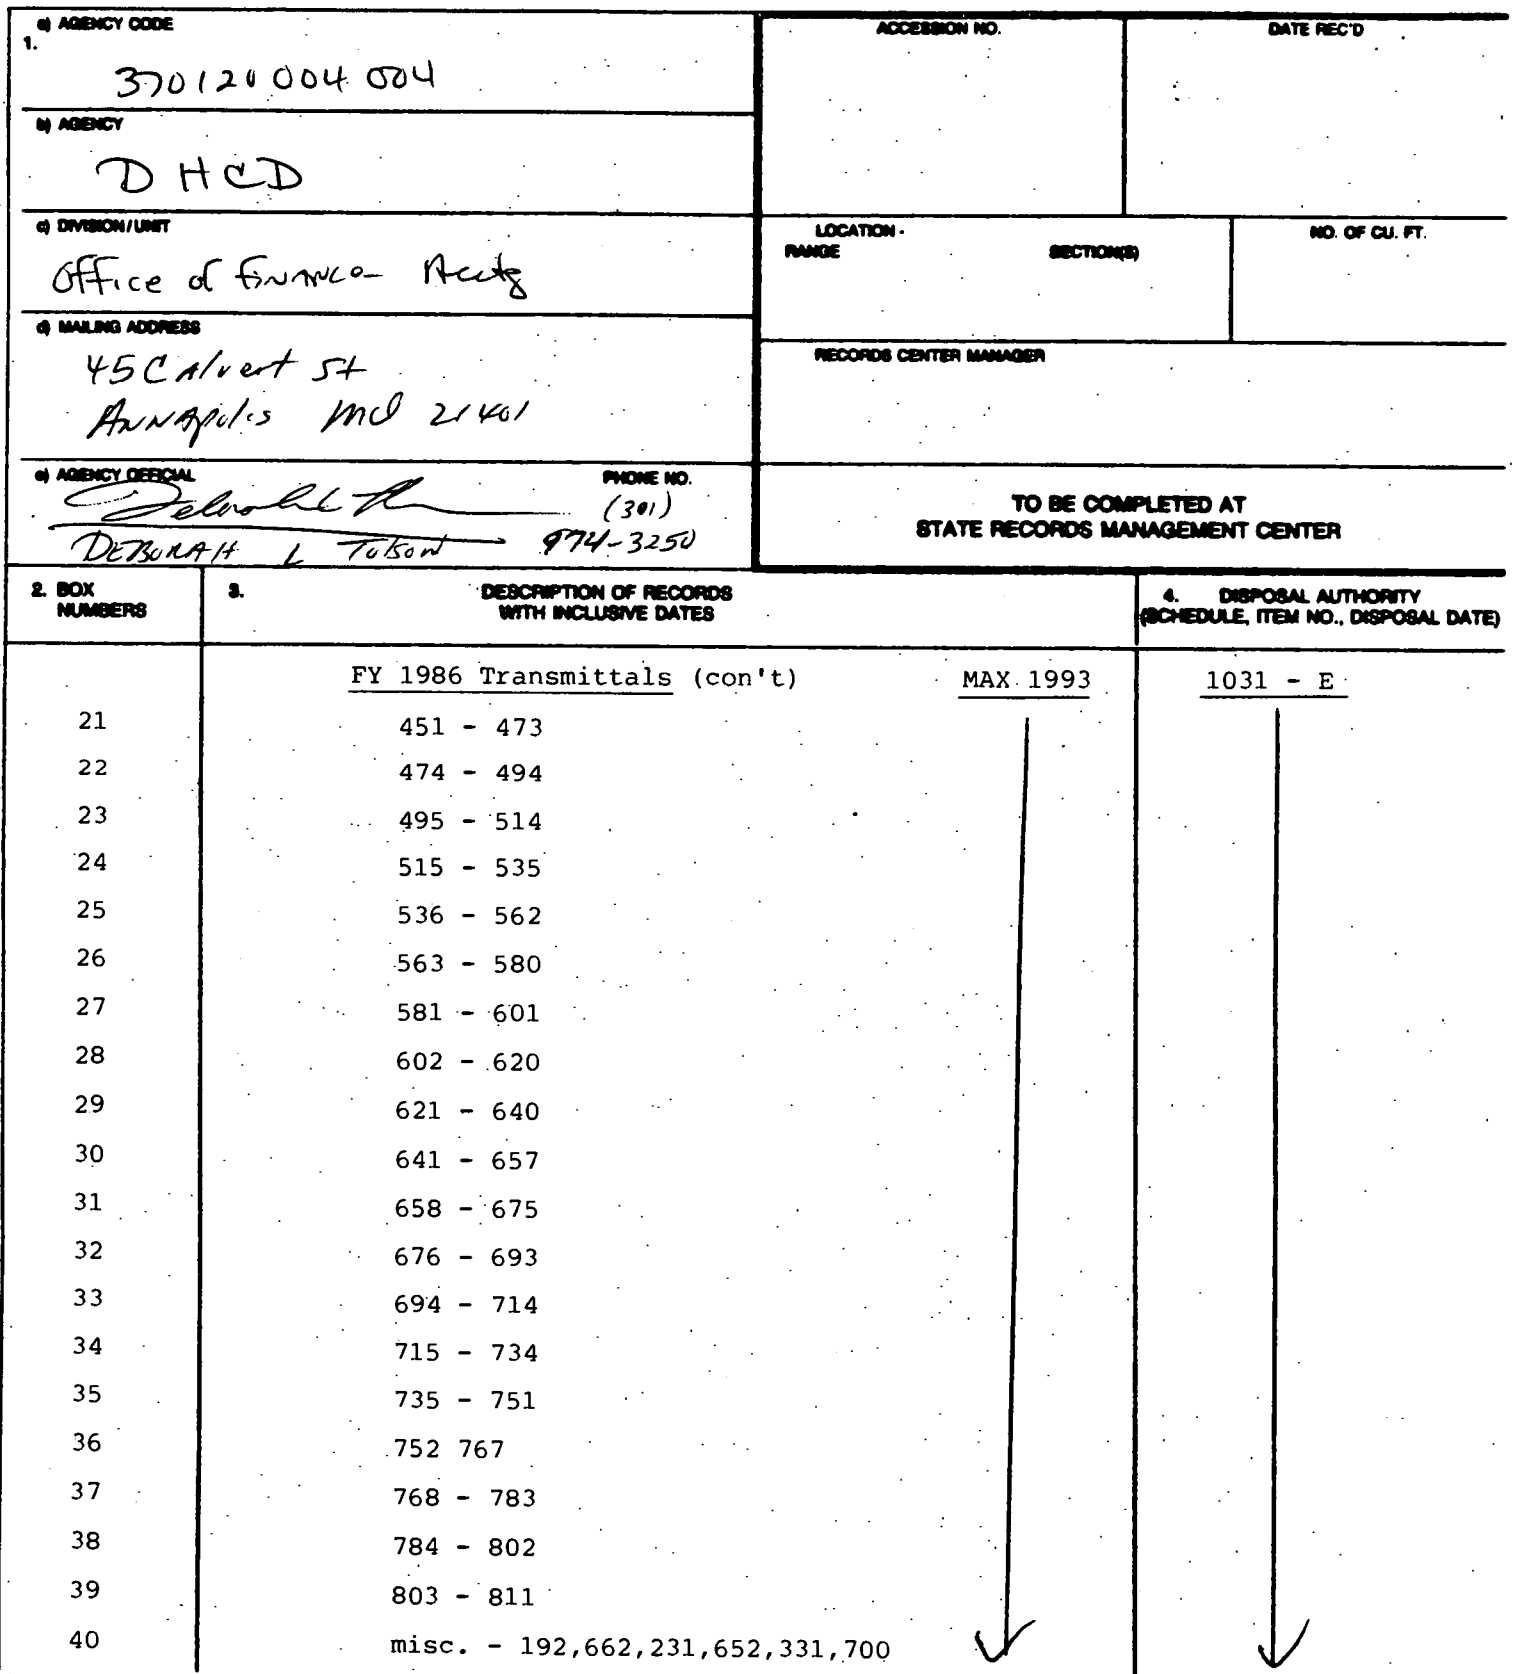 a) AGENCY CODE
1.
370120004004
b) AGENCY
DHCD
c) DIVISION/UNIT
Office of Finance - Acctg
d) MAILING ADDRESS
45 Calvert St
Annapolis Md 21401
e) AGENCY OFFICIAL
PHONE NO.
(301)
974-3250
DEBORAH L Tolson
ACCESSION NO.
DATE REC'D
LOCATION -
RANGE SECTION(S)
NO. OF CU. FT.
RECORDS CENTER MANAGER
TO BE COMPLETED AT
STATE RECORDS MANAGEMENT CENTER
2. BOX
NUMBERS
3. DESCRIPTION OF RECORDS
WITH INCLUSIVE DATES
4. DISPOSAL AUTHORITY
(SCHEDULE, ITEM NO., DISPOSAL DATE)
FY 1986 Transmittals (con't) MAX 1993 1031 - E
21 451 - 473
22 474 - 494
23 495 - 514
24 515 - 535
25 536 - 562
26 563 - 580
27 581 - 601
28 602 - 620
29 621 - 640
30 641 - 657
31 658 - 675
32 676 - 693
33 694 - 714
34 715 - 734
35 735 - 751
36 752 767
37 768 - 783
38 784 - 802
39 803 - 811
40 misc. - 192,662,231,652,331,700